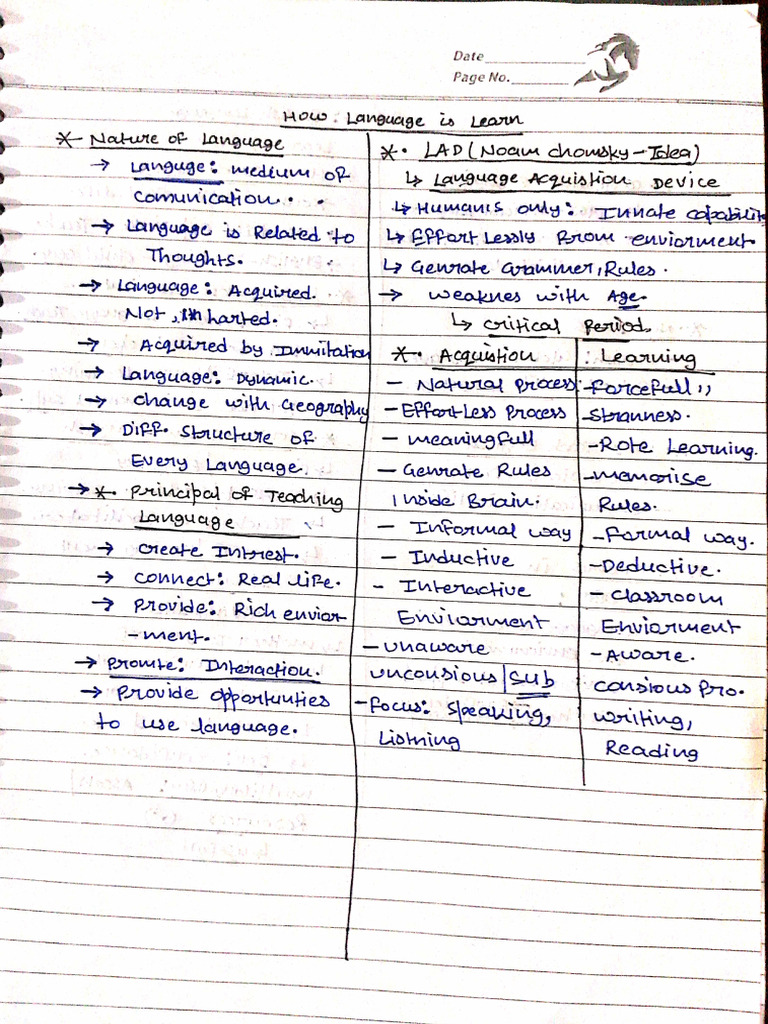 Date
Page No.
How : Language is Learn
* Nature of Language
→ Languge: medium of
comunication. .
→ Language is Related to
Thoughts.
→ Language: Acquired.
Not
→ Acquired by Immitation
→ Language: Dynamic.
→ change with Geography
→ Diff. structure of
Every Language.
→ *. Principal of Teaching
Language
→ create Intrest.
→ connect: Real life.
→ Provide: Rich envior
-ment.
→ Promte: Interaction.
→ Provide opportunties
to use language.
*. LAD (Noam chomsky - Idea)
↳ Language Acquistion Device
↳ Humanis only: Innate capabilit
↳ Effortlessly from enviorment.
↳ Genrate Grammer, Rules.
→ weaknes with Age.
↳ critical Period.
*. Acquistion : Learning
- Natural process: -forcefull,,
- Effortless Process -stranness.
- meaningfull -Rote Learning.
- Genrate Rules -memorise
Inside Brain. Rules.
- Informal way -Formal way.
- Inductive -Deductive.
- Interactive - classroom
Enviorment Enviorment
- unaware -Aware.
unconsious/Sub consious Pro.
-focus: speaking, writing,
Listning Reading